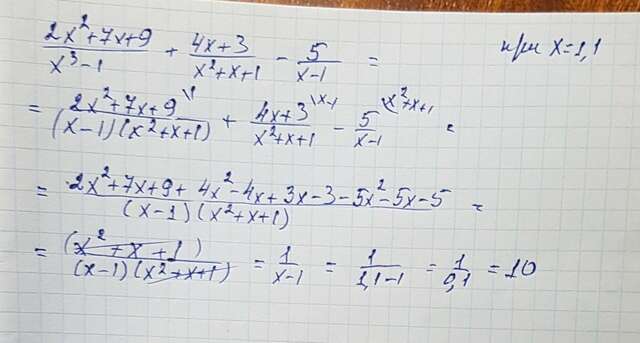 (2x²+7x+9)/(x³-1) + (4x+3)/(x²+x+1) - 5/(x-1) = при x=1,1
= (2x²+7x+9\1)/((x-1)(x²+x+1)) + (4x+3\x-1)/(x²+x+1) - (5\x²+x+1)/(x-1) =
= (2x²+7x+9+4x²-4x+3x-3-5x²-5x-5)/((x-1)(x²+x+1)) =
= (x²+x+1)/((x-1)(x²+x+1)) = 1/(x-1) = 1/(1,1-1) = 1/0,1 = 10